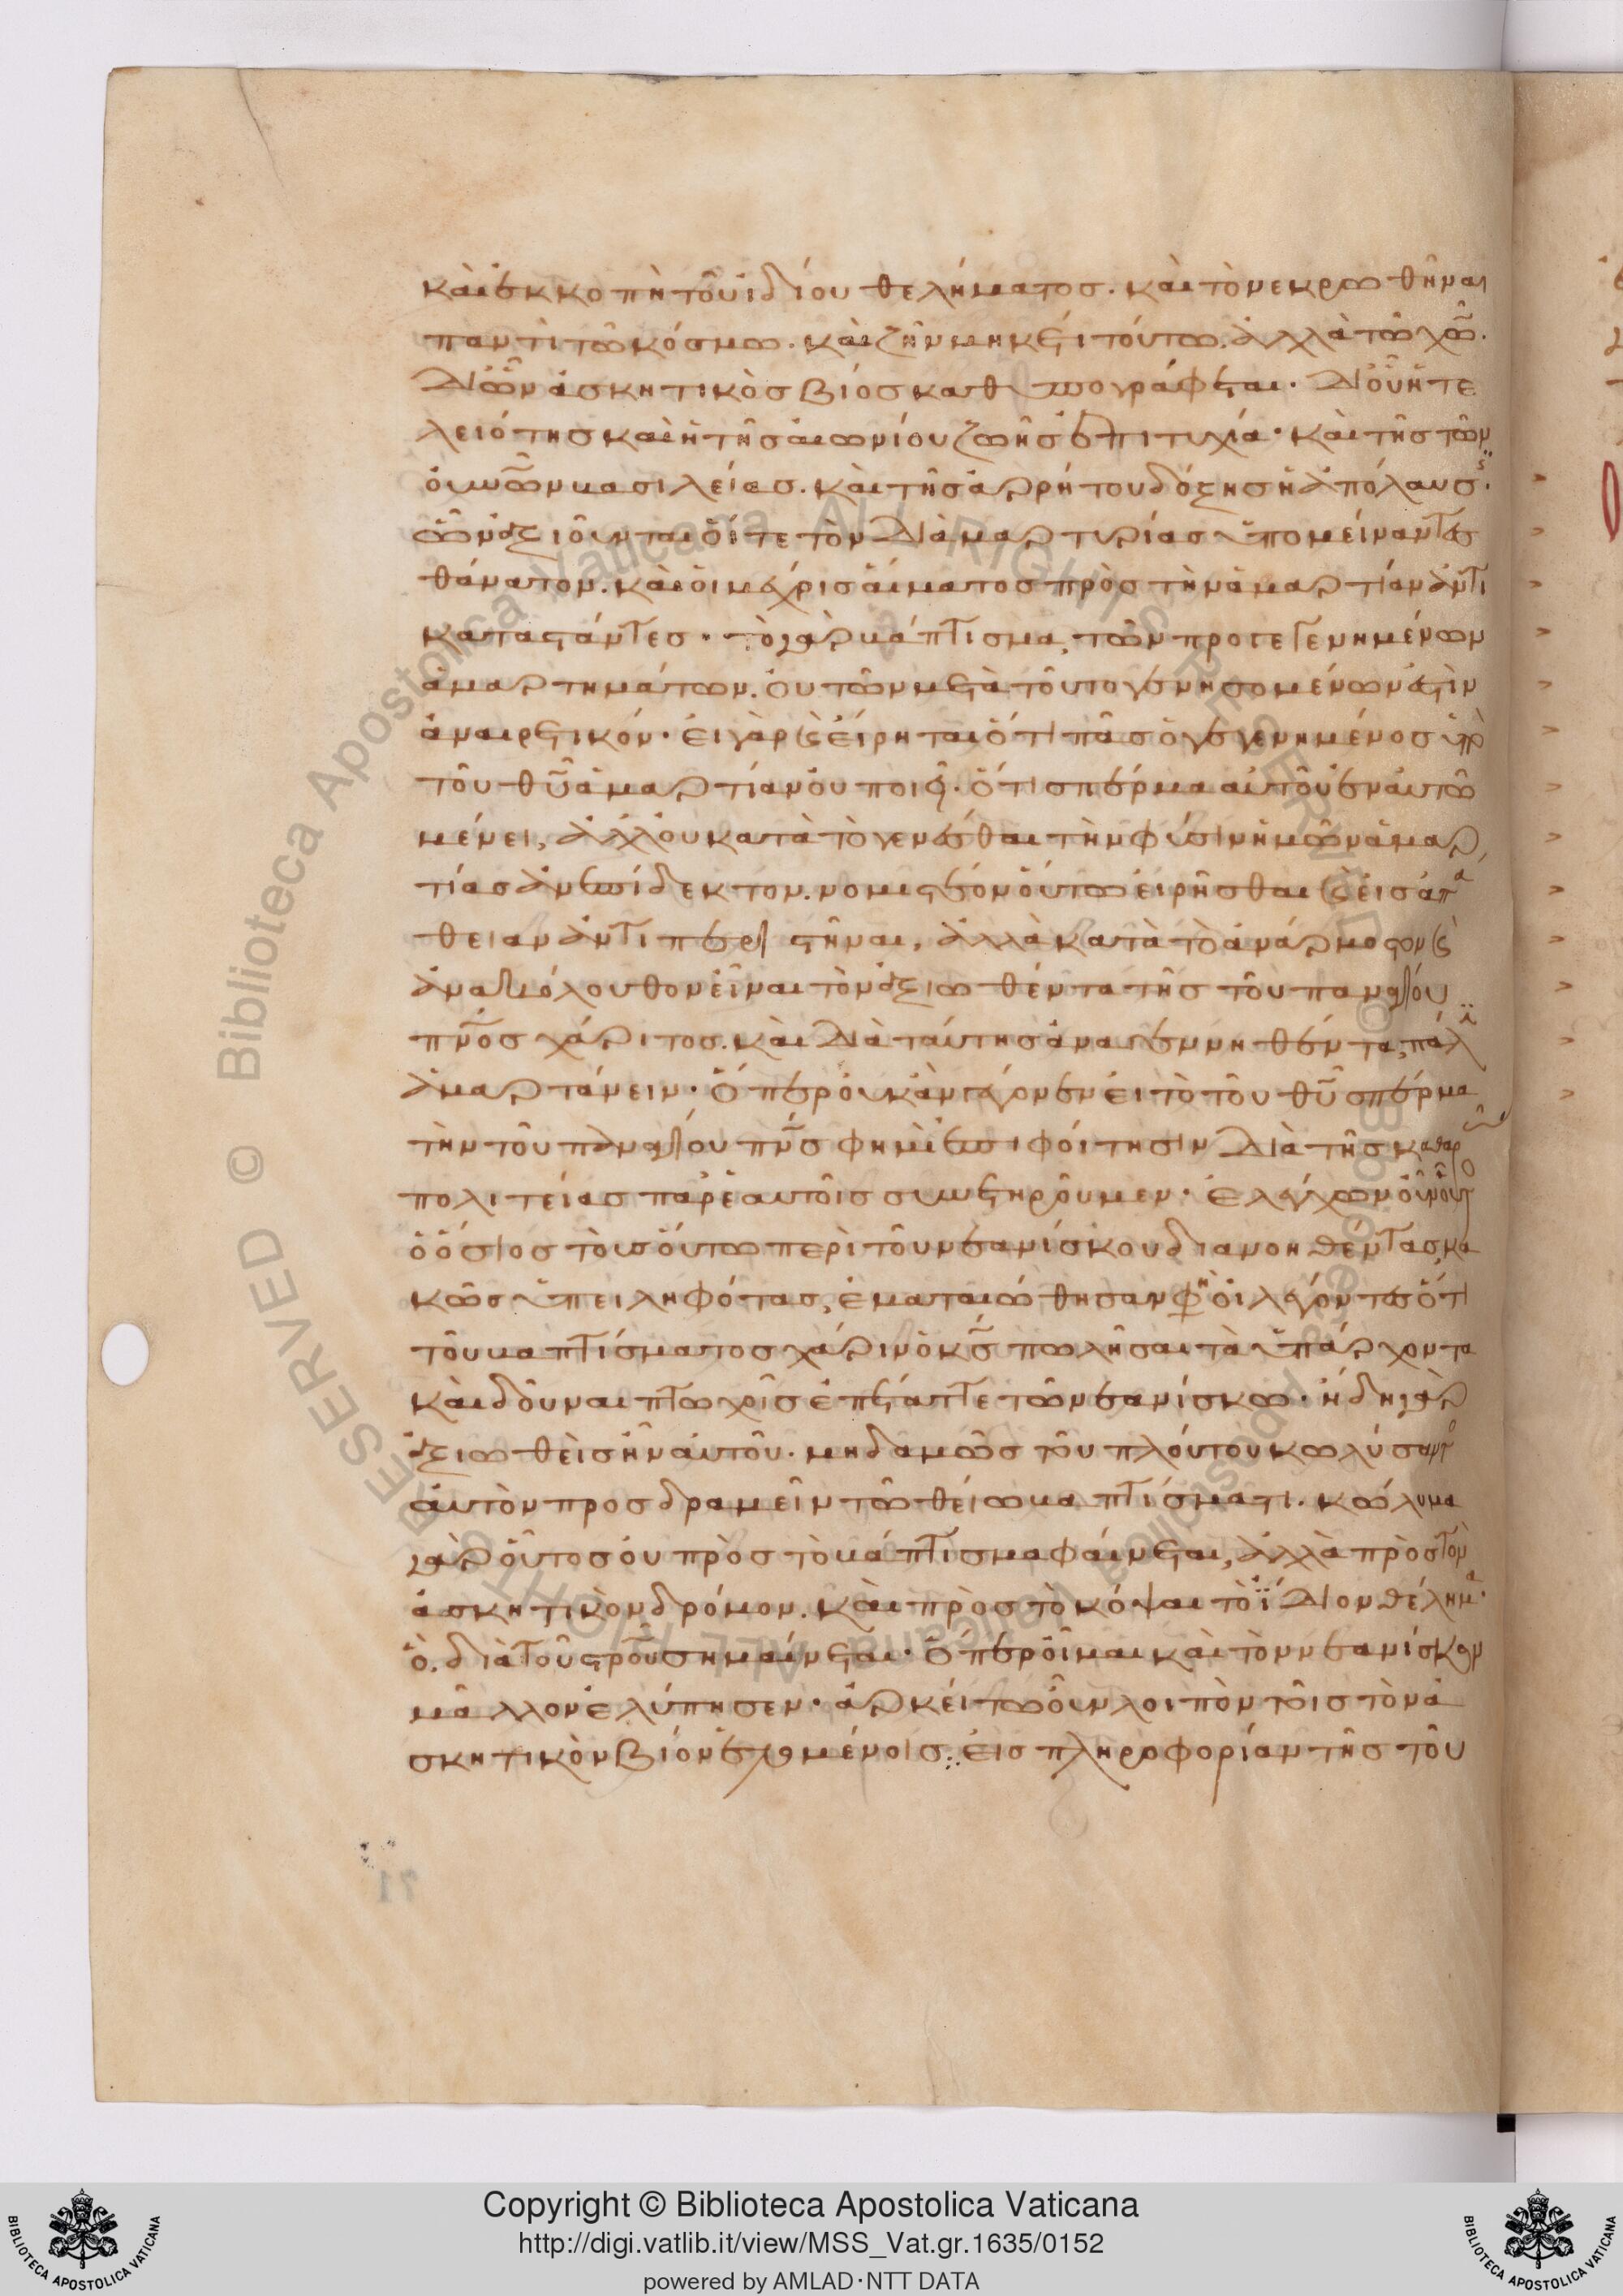 καὶ ἐκκοπὴ τοῦ ἰδίου θελήματος. καὶ τὸ νεκρωθῆναι
παντὶ τῶ κόσμω. καὶ ζῆν μηκέτι τούτω. ἀλλὰ τῶ χω.
δι ὧν ἀσκητικὸς βίος καθυπογράφεται. δι οὗ ἡ τε
λειότης καὶ ἡ τῆς αἰωνίου ζωῆς ἐπιτυχία. καὶ τῆς τῶν
οὐνῶν βασιλείας. καὶ τῆς ἀρρήτου δόξης ἡ ἀπόλαυσ.
ὧν ἀξιοῦνται οἵ τε τὸν διὰ μαρτυρίας ὑπομείναντες
θάνατον. καὶ οἱ μέχρις αἵματος πρὸς τὴν ἁμαρτίαν ἀντι
καταστάντες. τὸ γὰρ βάπτισμα, τῶν προγεγενημένων
ἁμαρτημάτων. οὐ τῶν μετὰ τοῦτο γενησομένων ἐστὶν
ἀναιρετικόν. εἰ γὰρ καὶ εἴρηται ὅτι πᾶς ὁ γεγενημένος ὑπὸ
τοῦ θυ ἁμαρτίαν οὐ ποιεῖ. ὅτι σπέρμα αὐτοῦ ἐν αὐτῶ
μένει, ἀλλ οὐ κατὰ τὸ γενέσθαι τὴν φύσιν ἡμῶν ἁμαρ
τίας ἀνεπίδεκτον. νομιστέον οὕτω εἰρῆσθαι καὶ εἰς ἀπα
θειαν ἀντιπεριστῆναι, ἀλλὰ κατὰ τὸ ἀνάρμοστον καὶ
ἀνακόλουθον εἶναι τὸν ἀξιωθέντα τῆς τοῦ παναγίου
πνος χάριτος. καὶ διὰ ταύτης ἀναγεννηθέντα, πάλιν
ἁμαρτάνειν. ὅπερ οὐκ ἂν γέγονεν εἰ τὸ τοῦ θυ σπέρμα
τὴν τοῦ παναγίου πνς φημὶ ἐπιφοίτησιν διὰ τῆς καθαρ
πολιτείας παρ ἑαυτοῖς συνετηροῦμεν. ἐλέγχων οὖν
ὁ ὅσιος τοὺς οὕτω περὶ τοῦ νεανίσκου διανοηθέντας, κα
κῶς ὑπειληφότας, ἐματαιώθησαν φη οἱ λέγοντες ὅτι
τοῦ βαπτίσματος χάριν ὁ κς πωλῆσαι τὰ ὑπάρχοντα
καὶ δοῦναι πτωχοῖς ἐπέταττε τῶ νεανίσκω. ἤδη γὰρ
ἀξιωθεὶς ἦν αὐτοῦ. μηδαμῶς τοῦ πλούτου κωλύσαντο
αὐτὸν προσδραμεῖν τῶ θείω βαπτίσματι. κώλυμα
γὰρ οὗτος οὐ πρὸς τὸ βάπτισμα φαίνεται, ἀλλὰ πρὸς τὸν
ἀσκητικὸν δρόμον. καὶ πρὸς τὸ κόψαι τὸ ἴδιον θέλημα.
ὃ. διὰ τοῦ στροῦ σημαίνεται. ὅπερ οἶμαι καὶ τὸν νεανίσκον
μᾶλλον ἐλύπησεν. ἀρκείτω οὖν λοιπὸν τοῖς τὸν ἀ
σκητικὸν βίον ἑλομένοις. εἰς πληροφορίαν τῆς τοῦ
71
Copyright © Biblioteca Apostolica Vaticana
http://digi.vatlib.it/view/MSS_Vat.gr.1635/0152
powered by AMLAD·NTT DATA